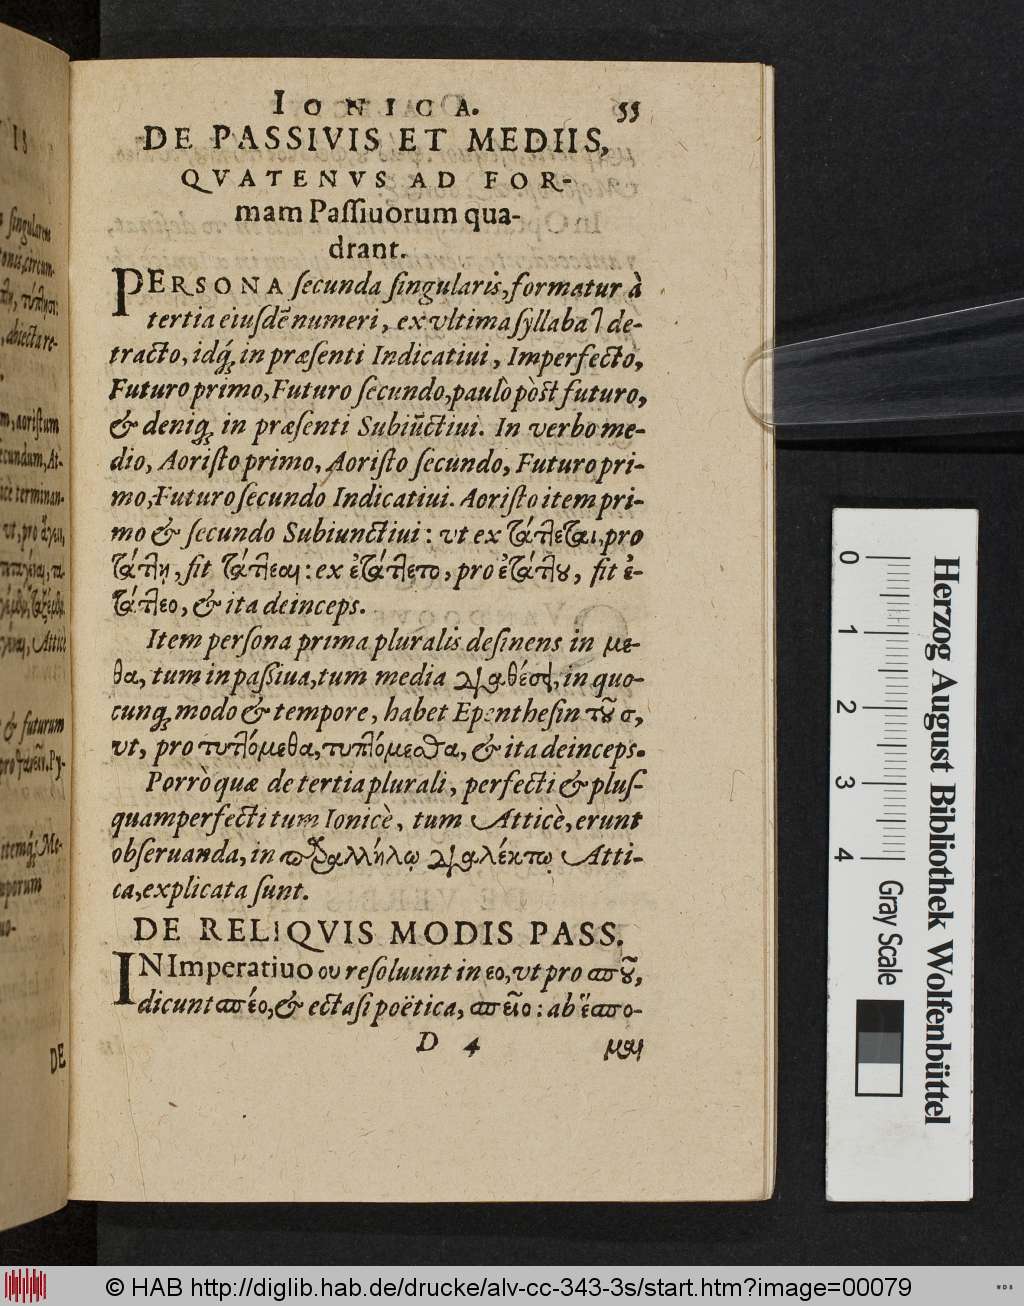 IONICA. 55
DE PASSIVIS ET MEDIIS,
QVATENVS AD FOR-
mam Paſſiuorum qua-
drant.
PERSONA ſecunda ſingularis, formatur à
tertia eiuſdē numeri, ex vltima ſyllaba τ de-
tracto, idq́; in præſenti Indicatiui, Imperfecto,
Futuro primo, Futuro ſecundo, paulò pòst futuro,
& deniq; in præſenti Subiūctiui. In verbo me-
dio, Aoriſto primo, Aoriſto ſecundo, Futuro pri-
mo, Futuro ſecundo Indicatiui. Aoriſto item pri-
mo & ſecundo Subiunctiui: vt ex τύπτεται, pro
τύπτῃ, fit τύπτεαι: ex ἐτύπτετο, pro ἐτύπτου, fit ἐ-
τύπτεο, & ita deinceps.
Item perſona prima pluralis deſinens in με-
θα, tum in paſſiua, tum media διαθέσῃ, in quo-
cunq; modo & tempore, habet Epentheſin τοῦ σ,
vt, pro τυπτόμεθα, τυπτόμεσθα, & ita deinceps.
Porrò quæ de tertia plurali, perfecti & pluſ-
quamperfecti tum Ionicè, tum Atticè, erunt
obſeruanda, in παραλλήλῳ διαλέκτῳ Atti-
ca, explicata ſunt.
DE RELIQVIS MODIS PASS.
IN Imperatiuo ου reſoluunt in εο, vt pro σποῦ,
dicunt σπέο, & ectaſi poëtica, σπεῖο: ab ἕσπο-
D 4 μαι
IS
ſingularem
DE
0
1
2
3
4
Herzog August Bibliothek Wolfenbüttel
Gray Scale
© HAB http://diglib.hab.de/drucke/alv-cc-343-3s/start.htm?image=00079